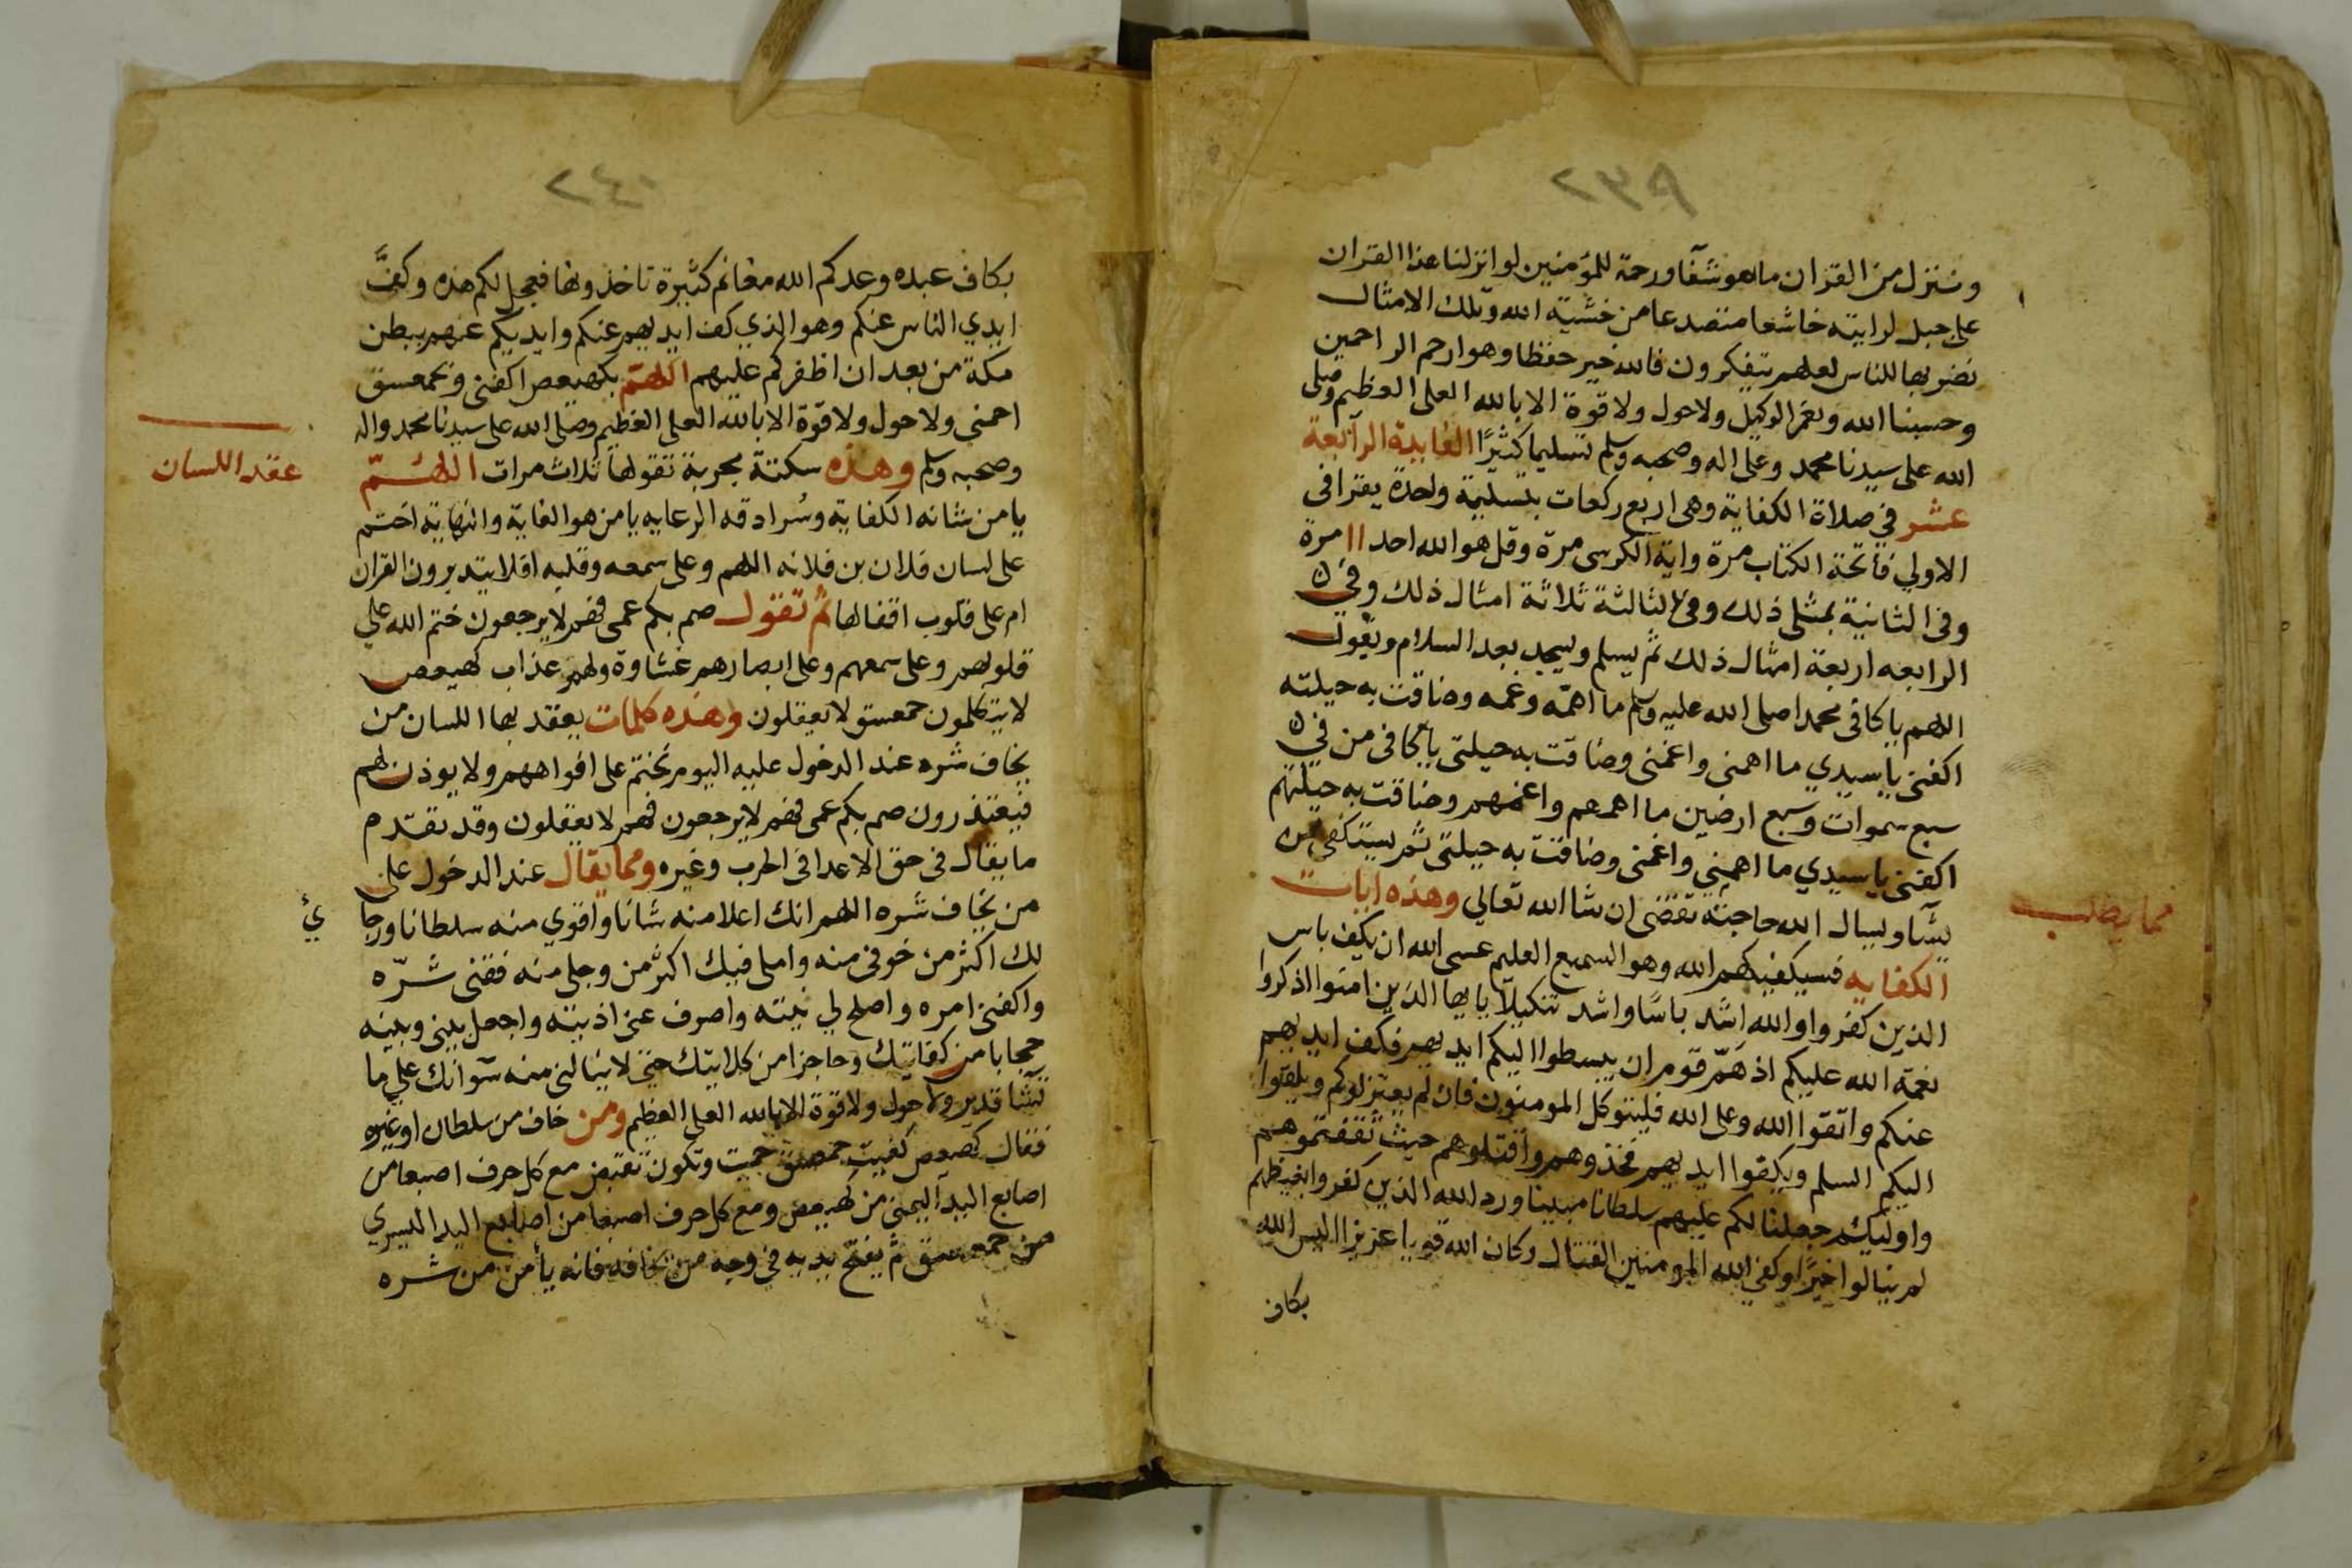 ٢٣٩
وننزل من القران ما هو شفآ ورحمة للمؤمنين لو انزلنا هذا القران
على جبل لرايته خاشعا متصدعا من خشية الله وتلك الامثال
نضربها للناس لعلهم يتفكرون فالله خير حفظا وهو ارحم الراحمين
وحسبنا الله ونعم الوكيل ولا حول ولا قوة الا بالله العلى العظيم وصلى
الله على سيدنا محمد وعلى اله وصحبه وسلم تسليما كثيرًا الفايدة الرابعة
عشر في صلاة الكفاية وهى اربع ركعات بتسليمة واحدة يقرا فى
الاولي فاتحة الكتاب مرة واية الكرسى مرة وقل هو الله احد ١١ مرة
وفى الثانية بمثلى ذلك وفى الثالثة ثلاثة امثال ذلك وفي
الرابعه اربعة امثال ذلك ثم يسلم ويسجد بعد السلام ويقول
اللهم يا كافى محمدا صلى الله عليه وسلم ما اهمّه وغمه وضاقت به حيلته
اكفنى يا سيدي ما اهمنى واغمنى وضاقت به حيلتى يا كافى من في
سبع سموات وسبع ارضين ما اهمهم واغمهم وضاقت به حيلتهم
اكفنى يا سيدي ما اهمني واغمنى وضاقت به حيلتى ثم يستكفى من
يشآ ويسال الله حاجته تقضى ان شا الله تعالي وهذه ايات
مما يطلب
الكفايه فسيكفيكهم الله وهو السميع العليم عسى الله ان يكف باس
الذين كفروا والله اشد باسًا واشد تنكيلًا يا ايها الذين امنوا اذكروا
نعمة الله عليكم اذ همّ قوم ان يبسطوا اليكم ايديهم فكف ايديهم
عنكم واتقوا الله وعلى الله فليتوكل المومنون فان لم يعتزلوكم ويلقوا
اليكم السلم ويكفوا ايديهم فخذوهم واقتلوهم حيث ثقفتموهم
واوليكم جعلنا لكم عليهم سلطانا مبينا ورد الله الذين كفروا بغيظهم
لم ينالوا خيرًا وكفى الله المومنين القتال وكان الله قويا عزيزا اليس الله
بكاف
٢٤٠
بكاف عبده وعدكم الله مغانم كثيرة تاخذونها فعجل لكم هذه وكفَّ
ايدي الناس عنكم وهو الذي كف ايديهم عنكم وايديكم عنهم ببطن
مكة من بعد ان اظفركم عليهم اللهم بكهيعص اكفنى وبحمعسق
احمنى ولا حول ولا قوة الا بالله العلى العظيم وصلى الله على سيدنا محمد واله
وصحبه وسلم وهذه سكتة مجربة تقولها ثلاث مرات اللهم
عقد اللسان
يا من شانه الكفاية وسُرادقه الرعايه يا من هو الغاية والنهاية اختم
على لسان فلان بن فلانه اللهم وعلى سمعه وقلبه افلا يتدبرون القران
ام على قلوب اقفالها ثم تقول صم بكم عمى فهم لا يرجعون ختم الله على
قلوبهم وعلى سمعهم وعلى ابصارهم غشاوة ولهم عذاب كهيعص
لا يتكلمون حمعسق لا يعقلون وهذه كلمات يعقد بها اللسان من
يخاف شره عند الدخول عليه اليوم نختم على افواههم ولا يوذن لهم
فيعتذرون صم بكم عمى فهم لا يرجعون فهم لا يعقلون وقد تقدم
ما يقال فى حق الاعدا فى الحرب وغيره ومما يقال عند الدخول على
من يخاف شره اللهم انك اعلا منه شانا واقوي منه سلطانا ورجاي
لك اكثر من خوفى منه واملى فيك اكثر من وجلى منه فقنى شرّه
واكفنى امره واصلح لي نيته واصرف عنى اذيته واجعل بينى وبينه
حجابا من كفايتك وحاجزا من كلايتك حتى لا ينالنى منه سوٓ انك على ما
تشآ قدير ولا حول ولا قوة الا بالله العلى العظيم ومن خاف من سلطان او غيره
فقال كهيعص كفيت حمعسق حميت وتكون تقبض مع كل حرف اصبعا من
اصابع اليد اليمنى من كهيعص ومع كل حرف اصبعا من اصابع اليد اليسري
من حمعسق ثم يفتح يديه في وجه من يخافه فانه يأمن من شره